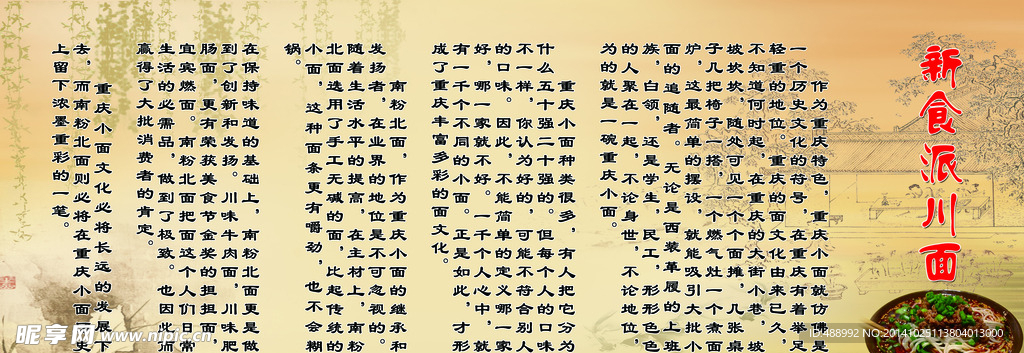 新食派川面
作为重庆特色，重庆小面就仿佛是
一个历史文化的符号，在重庆有着举足
轻重的地位。重庆的面文化由来已久，
不知道何时起，在重庆的大街小巷，坡
坡坎坎，随处可见一个个面摊，几张桌
子几把椅子一搭，一个燃气灶一个煮面
炉，这最简单的摆设，就能吸引大批小
面的追随者。无论是西装革履的上班
族，白领，还是学生，民工，形形色色
的人聚在一起，不论身世，不论地位，
为的就是一碗重庆小面。
重庆小面种类很多，有人把它分为
什么五十强二十强的。但每个人的口味
不一样，你认为好的，可能不符合别人
的口味。因此，不能简单的定义哪一家
好，哪一家就不好。一千个人心中，就
有一千个不同的小面。正是如此，才形
成了重庆丰富多彩的面文化。
南粉北面，作为重庆小面的继承和
发扬者，在业界的地位是不可忽视的。
随着生活水平的提高，在主材上，南粉
北面选用了手工无碱的面，比起传统的
小面，这种面条更有嚼劲，也不会糊
锅。
在保持味道的基础上，南粉北面更是做
到了创新和发扬。川味牛肉面，川味肥
肠面，更有荣获美食节金奖的担担面，
宜宾燃面。南粉北面把面这个人们日常
生活的必需品，做到了极致。也因此而
赢得了大批消费者的肯定。
重庆小面文化必将长远的发展下
去，而南粉北面则必将在重庆小面历史
上留下浓墨重彩的一笔。
昵享网 www.nipic.cn
ID:488992 NO:20141029113804013000